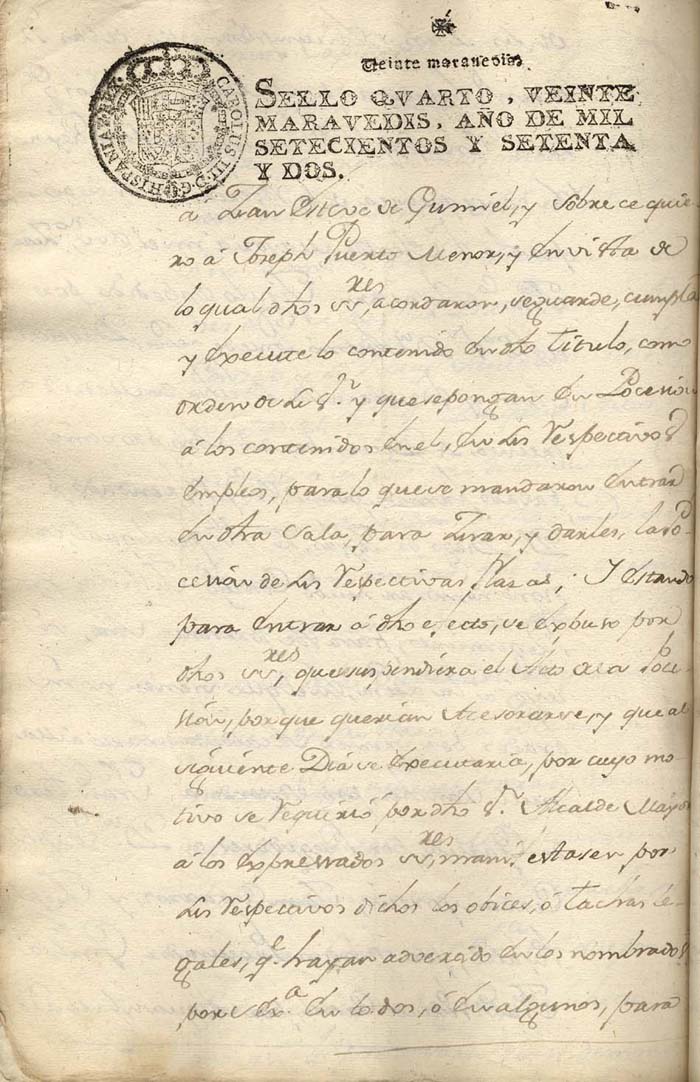 Veinte maravedis.
SELLO QVARTO, VEINTE
MARAVEDIS, AÑO DE MIL
SETECIENTOS Y SETENTA
Y DOS.
CAROLUS III. D. G. HISPANIAR. REX
á Juan Esteve de Gumiel, y Sobreceguie-
ro á Joseph Puerto Menor, y en vista de
lo qual dhos ss.res acordaron, se guarde, cumpla
y execute lo contenido en dho titulo, como
orden de S. y que se pongan en Pocesion
á los contenidos en el, en sus Respectivos
empleos, para lo que se mandaron entrar
en otra Sala, para Jurar, y darles, la Po-
cesion de sus Respectivas Plazas; Y estando
para entrar á dho efecto, se expuso por
dhos ss.res, que suspendiera el Acto de la Poce-
sion, porque querian Asesorarse, y que al
siguiente Dia se executaria, por cuyo mo-
tivo se requirió por dho S.r Alcalde Mayor
á los expressados ss.res manifestasen por
sus Respectivos dichos los obices, ó tachas le-
gales, q.e hayan advertido en los nombrados
por S. Ex.a en todos, ó en algunos, para